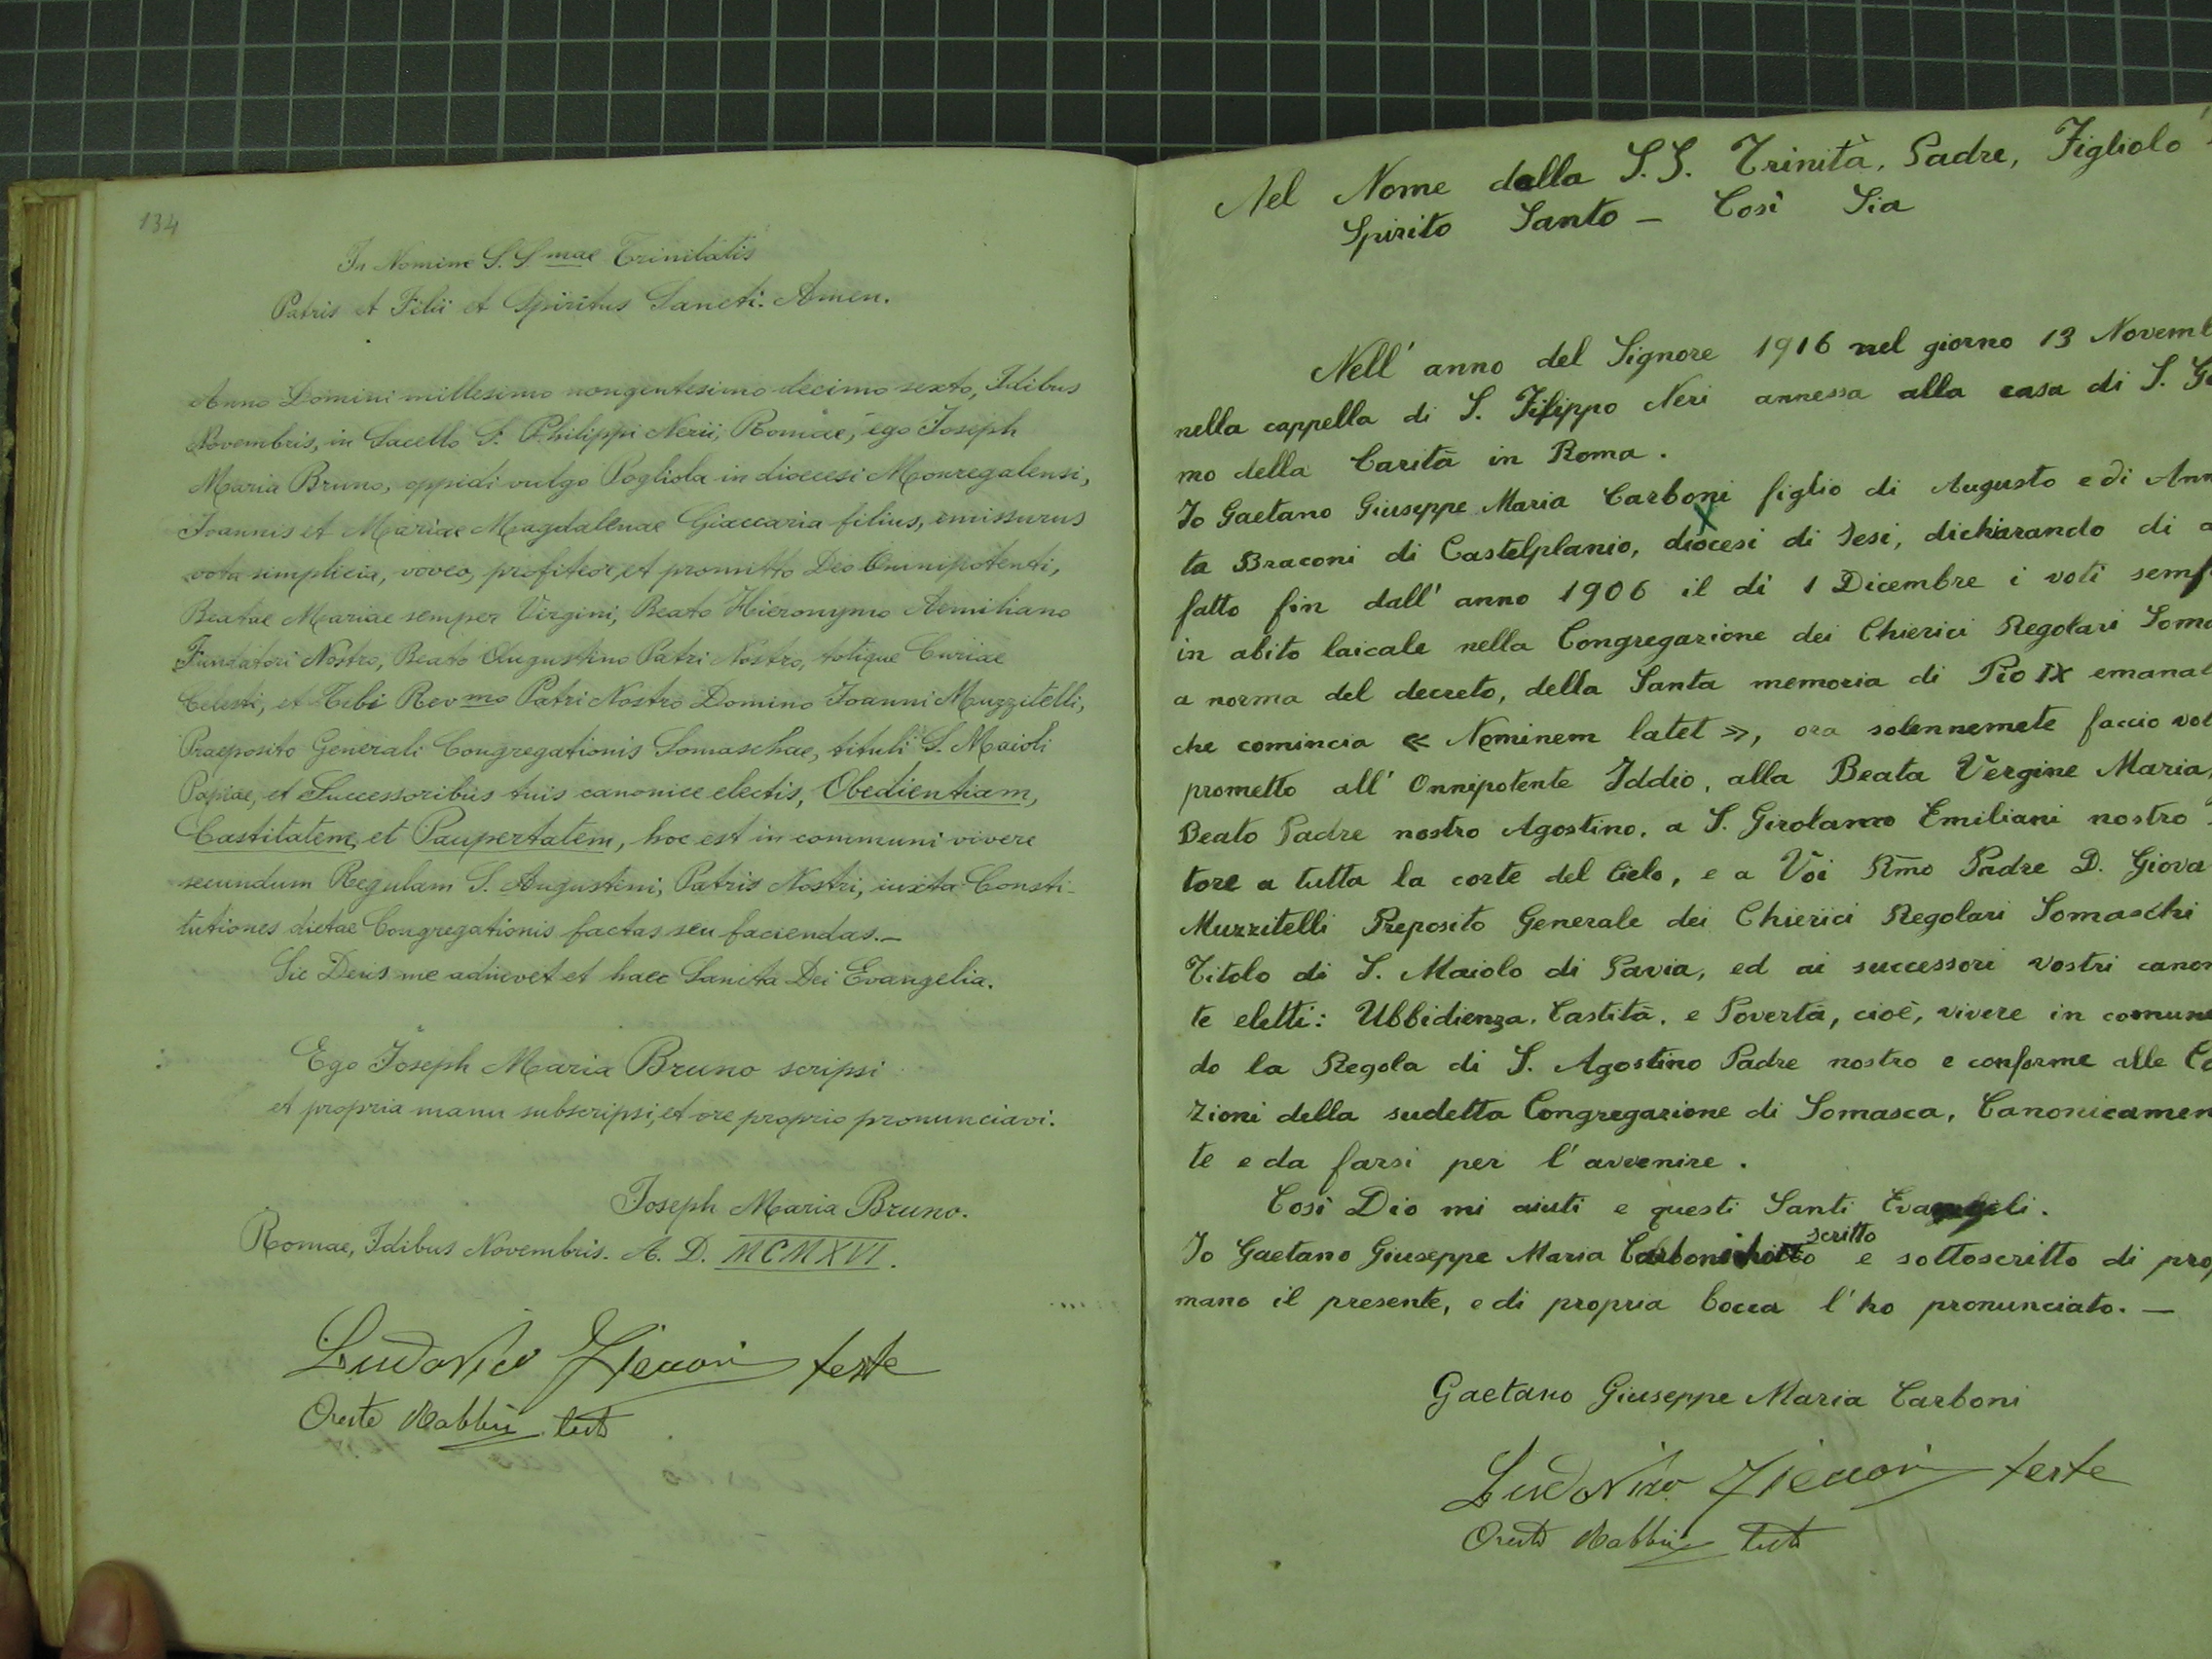 134
In Nomine S. S.mae Trinitatis
Patris et Filii et Spiritus Sancti. Amen.
Anno Domini millesimo nongentesimo decimo sexto, Idibus
Novembris, in Sacello S. Philippi Nerii, Romae, ego Joseph
Maria Bruno, oppidi vulgo Pogliola in dioecesi Monregalensi,
Joannis et Mariae Magdalenae Giaccaria filius, emissurus
vota simplicia, voveo, profiteor, et promitto Deo Omnipotenti,
Beatae Mariae semper Virgini, Beato Hieronymo Aemiliano
Fundatori Nostro, Beato Augustino Patri Nostro, totique Curiae
Celesti, et Tibi Rev.mo Patri Nostro Domino Joanni Muzzitelli,
Praeposito Generali Congregationis Somaschae, tituli S. Maioli
Papiae, et Successoribus tuis canonice electis, Obedientiam,
Castitatem, et Paupertatem, hoc est in communi vivere
secundum Regulam S. Augustini, Patris Nostri, iuxta Consti-
tutiones dictae Congregationis factas seu faciendas.—
Sic Deus me adiuvet et haec Sancta Dei Evangelia.
Ego Joseph Maria Bruno scripsi
et propria manu subscripsi, et ore proprio pronunciavi.
Joseph Maria Bruno.
Romae, Idibus Novembris. A. D. MCMXVI.
Ludovico teste
Oreste
Nel Nome della S.S. Trinità, Padre, Figliolo
Spirito Santo – Così Sia
Nell' anno del Signore 1916 nel giorno 13 Novemb
nella cappella di S. Filippo Neri annessa alla casa di S. G
mo della Carità in Roma.
Io Gaetano Giuseppe Maria Carboni figlio di Augusto e di Ann
ta Braconi di Castelplanio, diocesi di Jesi, dichiarando di a
fatto fin dall' anno 1906 il dì 1 Dicembre i voti semp
in abito laicale nella Congregazione dei Chierici Regolari Soma
a norma del decreto, della Santa memoria di Pio IX emanat
che comincia « Neminem latet », ora solennemete faccio vot
prometto all' Onnipotente Iddio, alla Beata Vergine Maria,
Beato Padre nostro Agostino, a S. Girolamo Emiliani nostro
tore a tutta la corte del Cielo, e a Voi Rmo Padre D. Giova
Muzzitelli Preposito Generale dei Chierici Regolari Somaschi
Titolo di S. Maiolo di Pavia, ed ai successori vostri canon
te eletti: Ubbidienza, Castità, e Povertà, cioè, vivere in comune
do la Regola di S. Agostino Padre nostro e conforme alle Co
zioni della sudetta Congregazione di Somasca, Canonicamen
te e da farsi per l' avvenire.
Così Dio mi aiuti e questi Santi Evangeli.
Io Gaetano Giuseppe Maria Carboni scritto e sottoscritto di prop
mano il presente, e di propria bocca l' ho pronunciato. —
Gaetano Giuseppe Maria Carboni
Ludovico teste